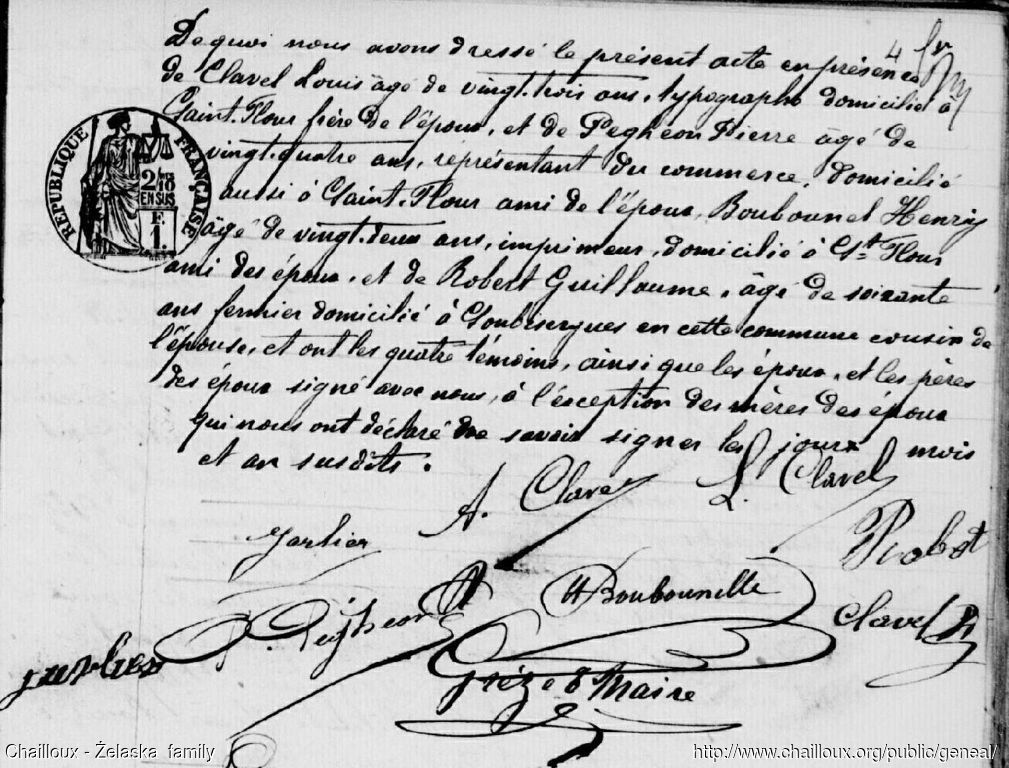 De quoi nous avons dressé le présent acte en présence
de Clavel Louis âgé de vingt-trois ans, typographe domicilié à
Saint-Flour frère de l'époux, et de Pegheon Pierre âgé de
vingt-quatre ans, représentant du commerce, domicilié
aussi à Saint-Flour ami de l'époux, Boubounel Henry
âgé de vingt-deux ans, imprimeur, domicilié à St-Flour
ami des époux, et de Robert Guillaume, âgé de soixante
ans fermier domicilié à Loubeserques en cette commune cousin de
l'épouse, et ont les quatre témoins, ainsi que les époux, et les pères
des époux signé avec nous, à l'exception des mères des époux
qui nous ont déclaré ne savoir signer les jour mois
et an susdits.
RÉPUBLIQUE FRANÇAISE
2/10
EN SUS
F.
1.
A. Clavel
L. Clavel
Jarlier
Robert
P. Pegheon
H Boubounelle
Clavel
Jarlier
Maire
Chailloux - Żelaska family
http://www.chailloux.org/public/geneal/